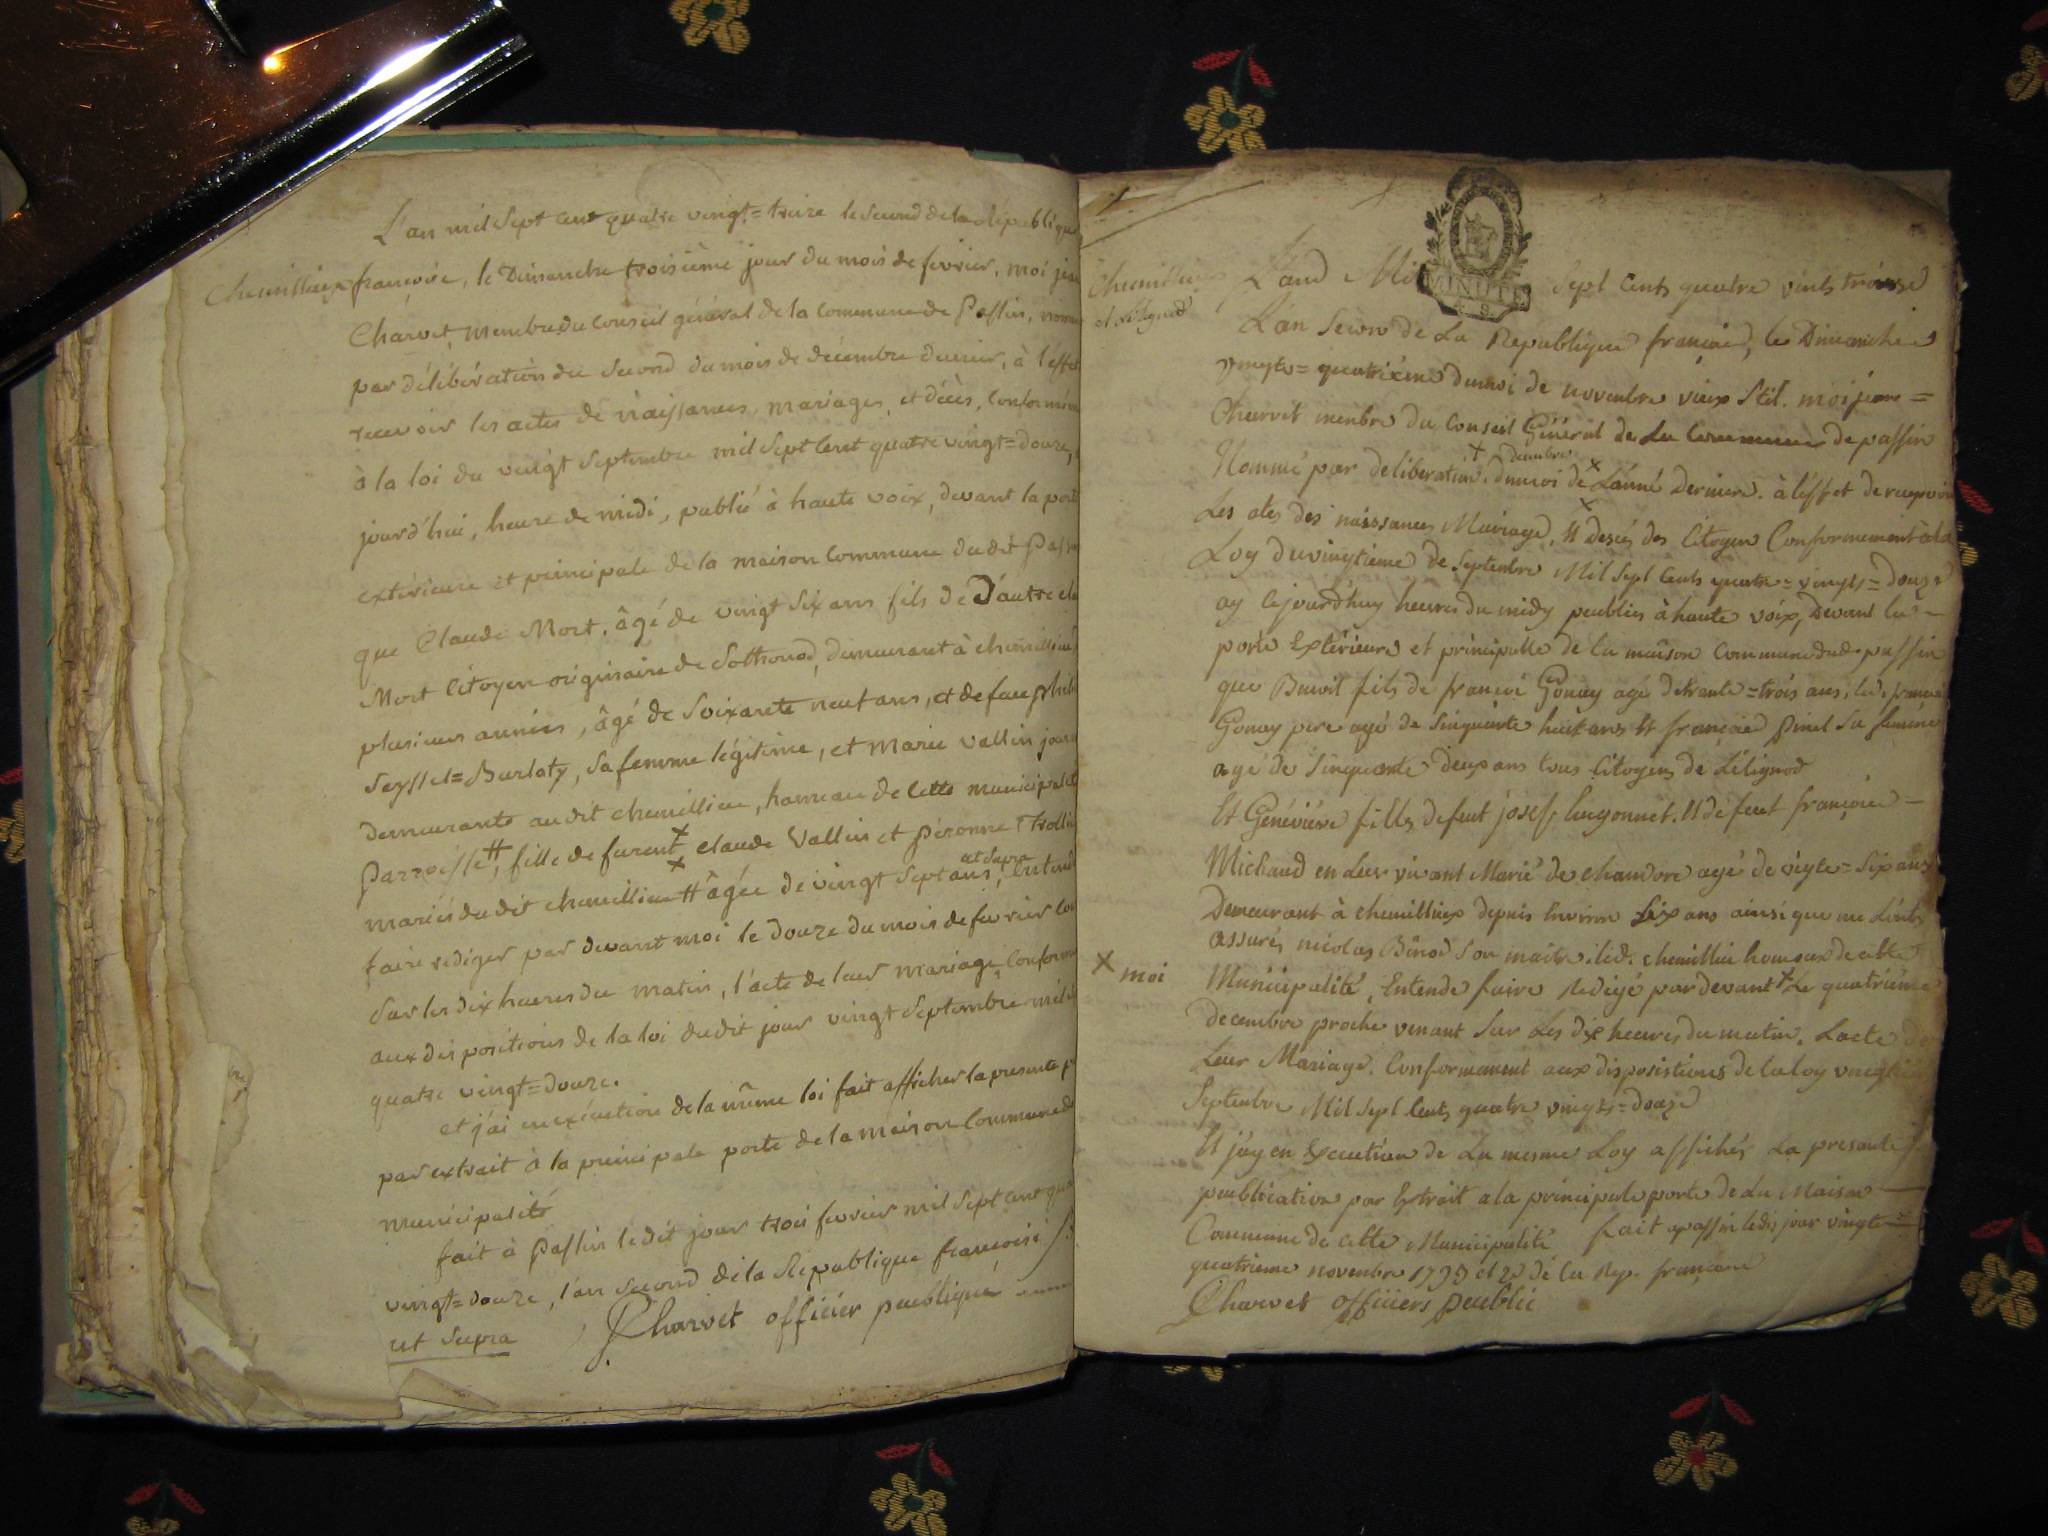 L'an mil sept cent quatre vingt=treize le second de la république
Chemillieu françoise, le Dimanche troisième jour du mois de fevrier, moi jean
Charvet, membre du Conseil général de la Commune de Passin, nommé
par délibération du second du mois de décembre dernier, à l'effet
recevoir les actes de naissances, mariages, et décès, conformém
à la loi du vingt septembre mil sept cent quatre vingt=douze,
jourd'hui, heure de midi, publié à haute voix, devant la porte
extérieure et principale de la maison Commune dudit Passin
que Claude Mort, âgé de vingt six ans fils de D'autre cla
Mort Citoyen originaire de Sothonod, demeurant à chemillieu
plusieurs années, âgé de soixante neuf ans, et de feue
Seyssel=Burlaty, sa femme légitime, et Marie Vallin
demeurante au dit chemillieu, hameau de cette municipalité
Parroisse ++, fille de furent x claude Vallin et péronne
mariés du dit chemillieu ++ âgée de vingt sept ans, ut supra entend
faire rediger par devant moi le douze du mois de fevrier
sur les dix heures du matin, l'acte de leur mariage, conform
aux dispositions de la loi dudit jour vingt septembre mil
quatre vingt=douze.
et j'ai en exécution de la même loi fait afficher la presente
par extrait à la principale porte de la maison Commune de
municipalité
fait à Passin le dit jour trois fevrier mil sept cent qua
vingt=douze, l'an second de la République françoise
ut supra Charvet officier publique
Chemillieu
et Lélignod
MINUTE
L'and Mil Sept Cents quatre vints treize
L'an Second de La Republique françoise, le Dimanche
vingte=quatriéme du moi de novembre vieux Stil. moi jean=
Charvet menbre du Conseil Général de La Commune de passin
Nommé par deliberation + du moi de decembre x L'anné derniere. à l'effet de recepvoir
Les ates des naissances Mariage, Et desés des Citoyen Conformement à la
Loy du vingtieme de Septembre Mil Sept Cents quatre=vingts=douze
ay cejourd'huy heures du midy peublier à haute voix, Devant la
porte Extérieure et principalle de la maison commune dud. passin
que Benoit fils de francoi Gonay agé de trante=trois ans, led. francoi
Gonay pere agé de Sinquante huit ans Et françoise pinel Sa femme
agé de Sinquante deux ans tous Citoyens de Lélignod
Et Généviéve fille de feut josef hugonnet. Et de feut françoise
Michaud en Leur vivant Marié de chandore agé de vigte=Six ans
Demeurant à chemillieux depuis Environ Six ans ainsi que me L'ints
assurés nicolas Bénod Son maitre, dud. chemillieu homeaux de cette
x moi
Municipalité, Entende faire Redigé par devant x Le quatriéme
decembre proche venant Sur Les dix heures du matin. L'acte de
Leur Mariage. Conformement aux disposistions de la loy vingtiem
Septembre Mil Sept Cents quatre vingts=douze
Et j'ay en Execution de La mesme Loy affichér La presante
peublication par Extrait a la principale porte de La Maison
Commune de cette Municipalité fait a passin ledis jour vingte
quatrieme novembre 1793 et 2e de la Rep. françoise
Charvet officiers peublic